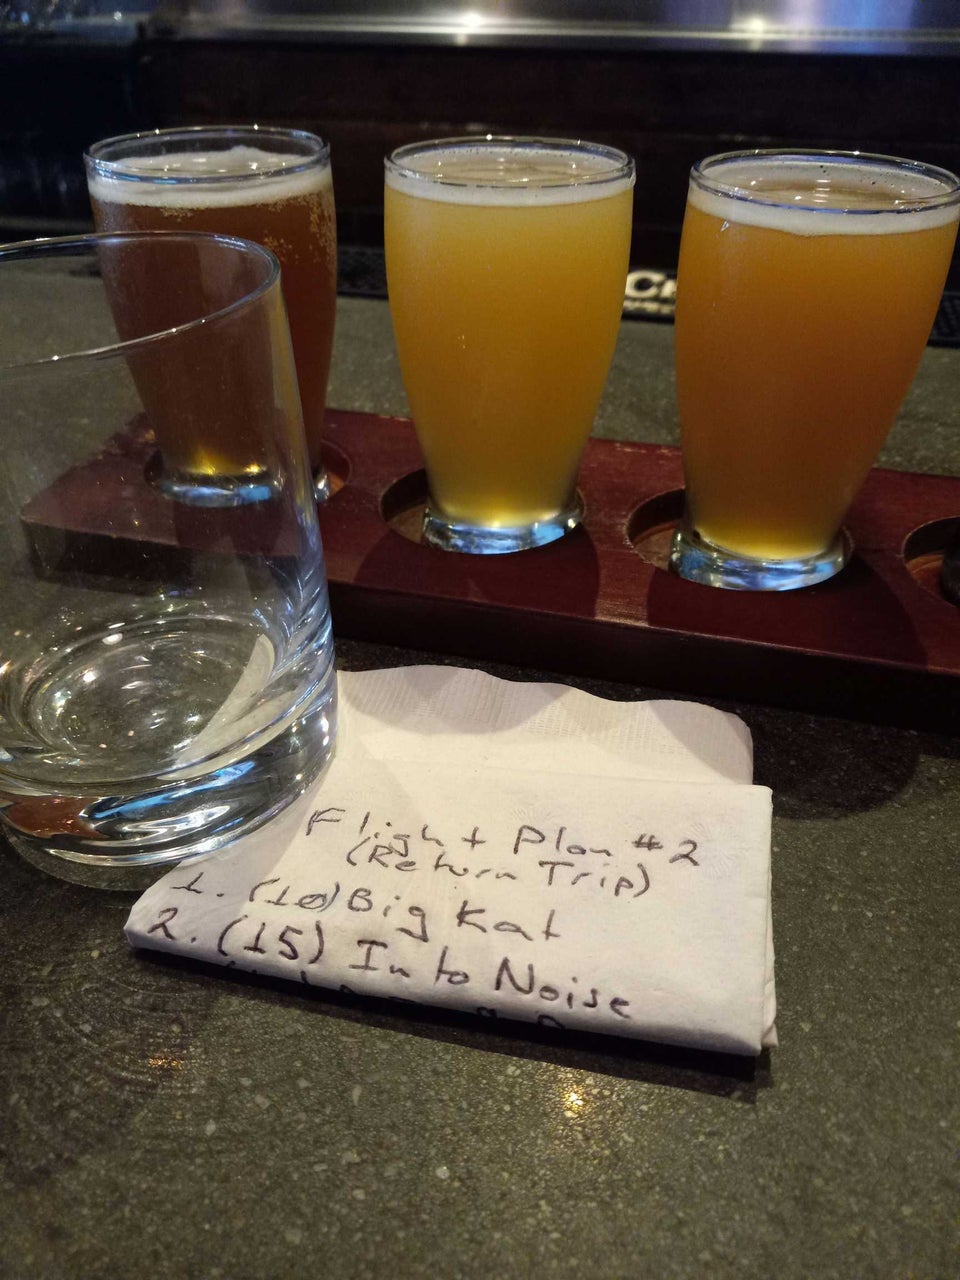 Flight Plan #2
(Return Trip)
1. (10) Big Kat
2. (15) In to Noise